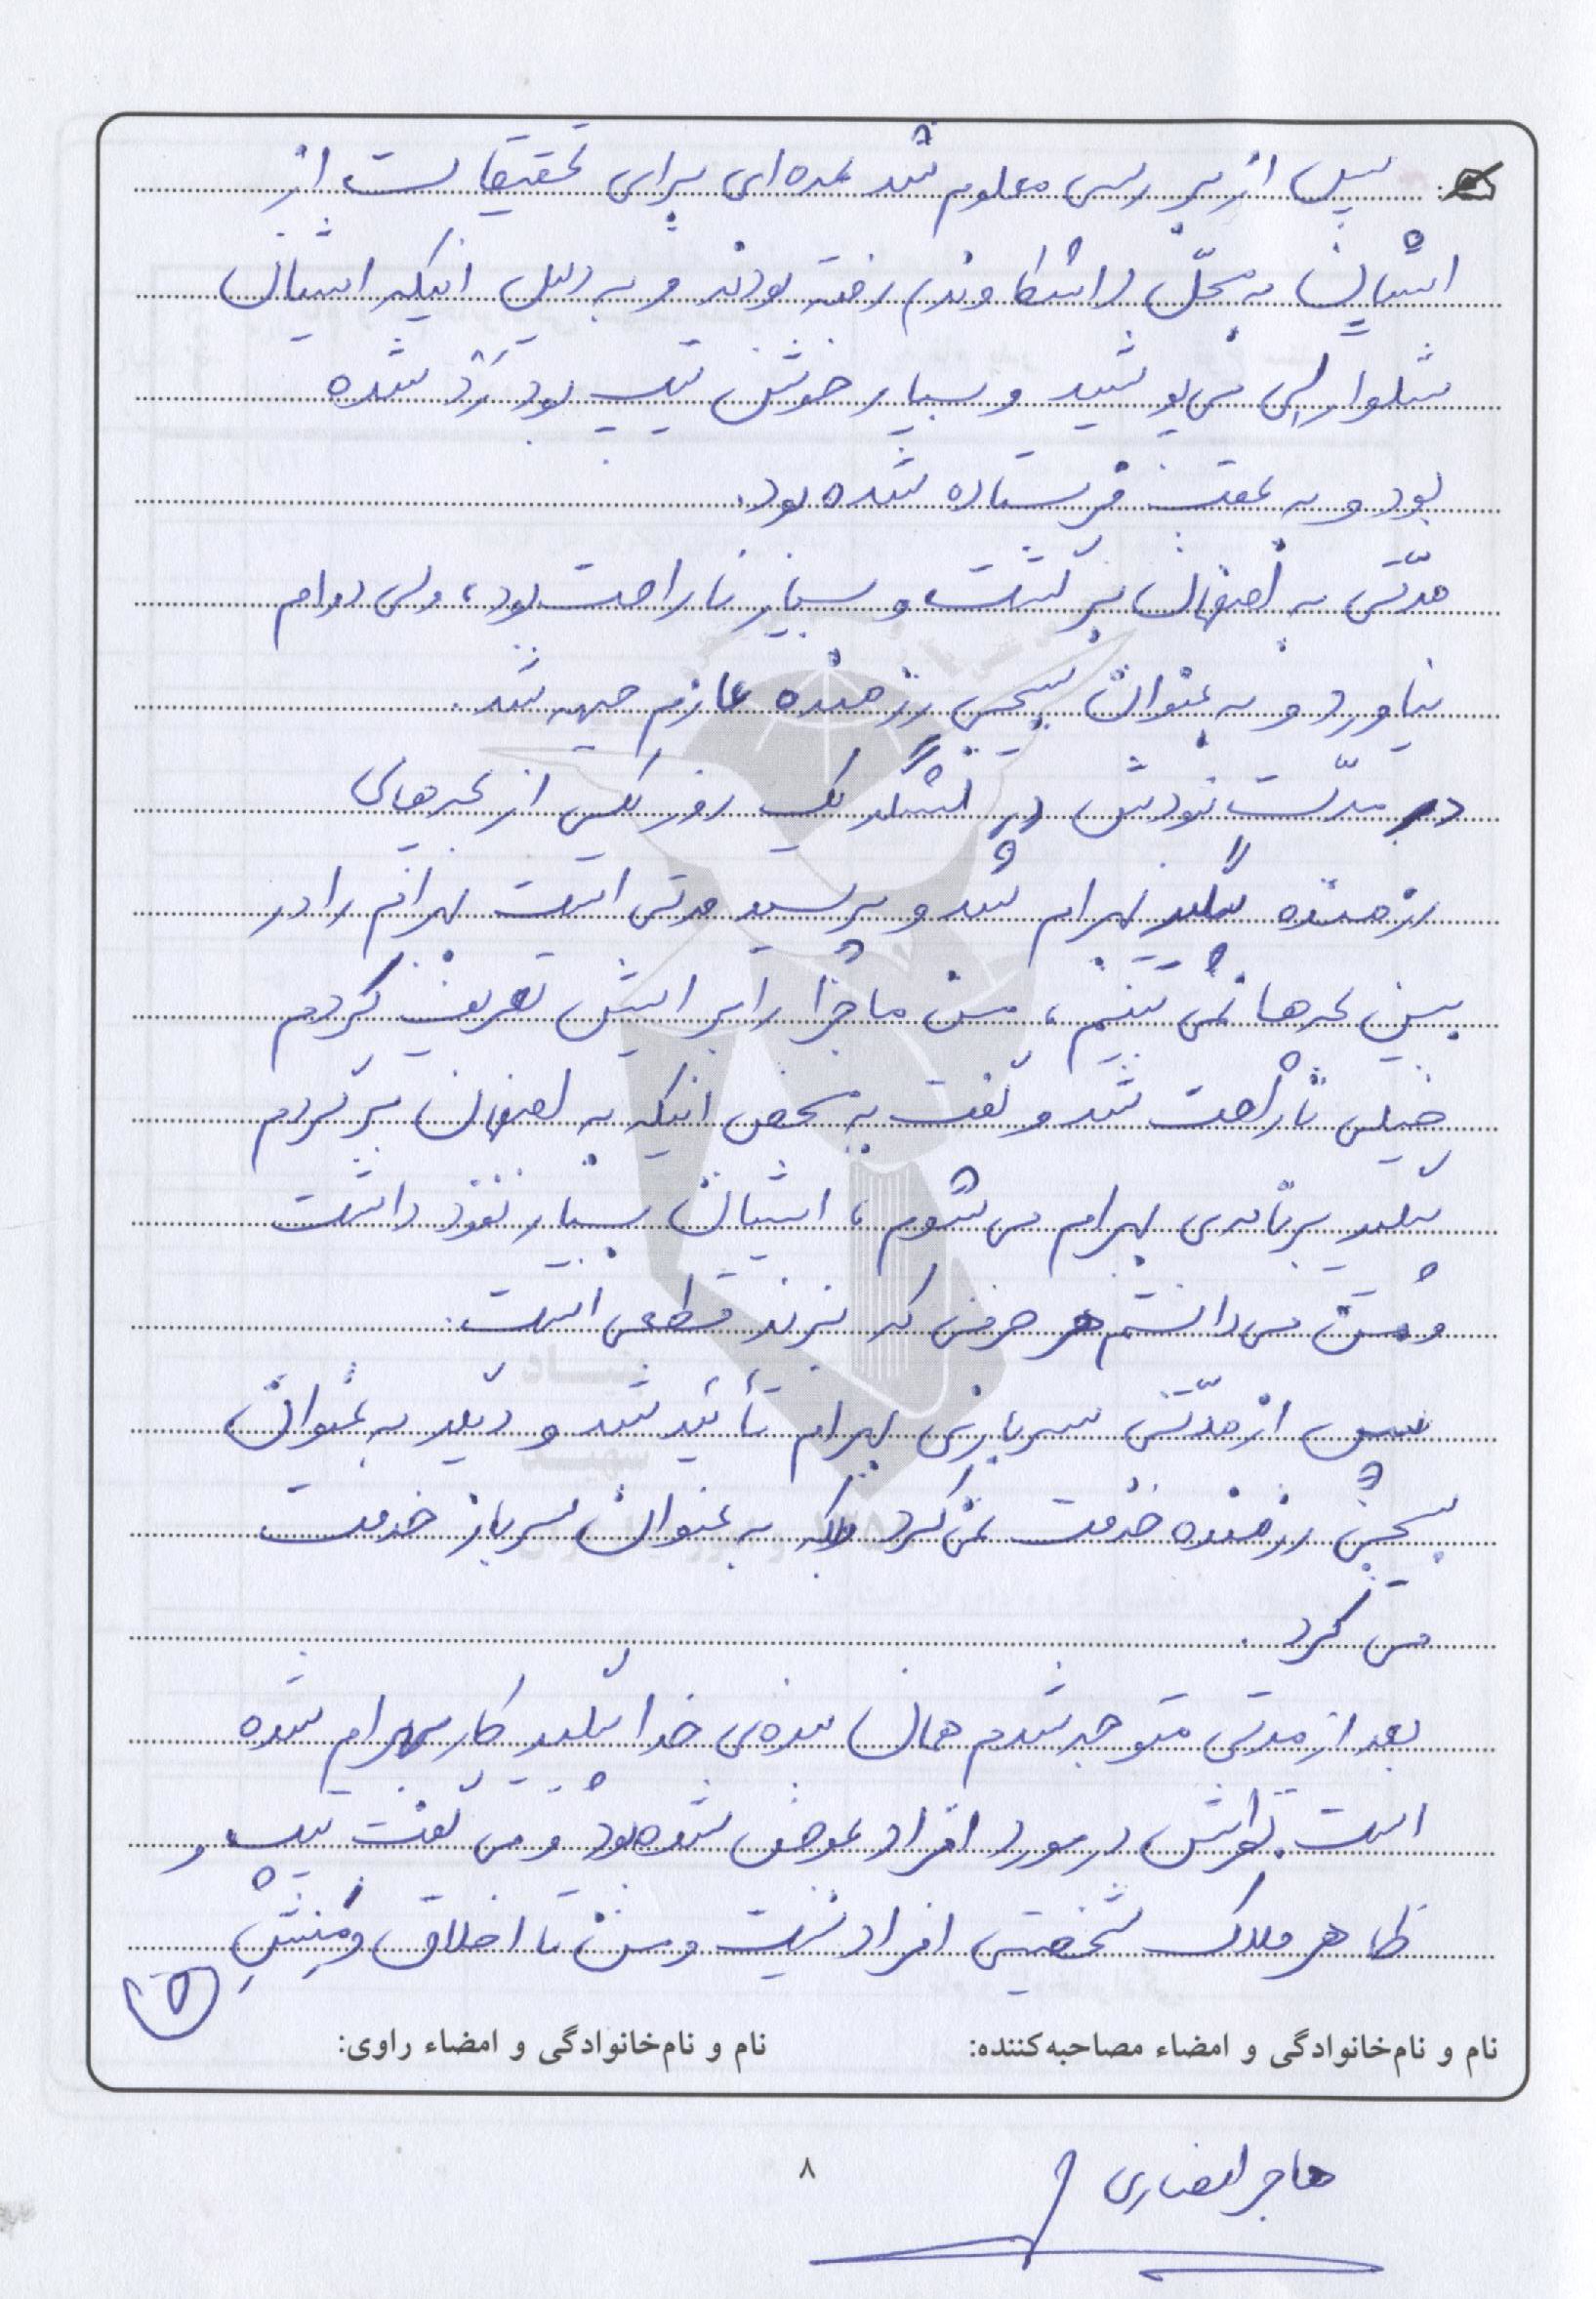 پس از بررسی معلوم شد عده‌ای برای تحقیقات از
ایشان به محل داشکاوندم رفته بودند و به دلیل اینکه ایشان
شلوار لی می‌پوشید و بسیار خوش تیپ بود رَد شده
بود و به عقب فرستاده شده بود.
مدّتی به اصفهان برگشت و بسیار ناراحت بود، ولی دوام
نیاورد و به عنوان بسیجی رزمنده عازم جبهه شد.
در مدّت نبودش در لشگر یک روز یکی از بچه‌های
رزمنده پیگیر بهرام شد و پرسید مدتی است بهرام را در
بین بچه‌ها نمی‌بینم، من ماجرا را برایش تعریف کردم
خیلی ناراحت شد و گفت به محض اینکه به اصفهان برگردم
پیگیر برنامه‌ی بهرام می‌شوم، ایشان بسیار نفوذ داشت
و من می‌دانستم هر حرفی که بزند قطعی است.
پس از مدّتی سربازی بهرام تأئید شد و دیگر به عنوان
بسیجی رزمنده خدمت نمی‌کرد بلکه به عنوان سرباز خدمت
می‌کرد.
بعد از مدتی متوجه شدم همان بنده‌ی خدا پیگیر کار بهرام شده
است. نظرش در مورد افراد عوض شده بود و می‌گفت تیپ و
ظاهر ملاک شخصیتی افراد نیست و من با اخلاق و مَنِشِ
۵
نام و نام‌خانوادگی و امضاء مصاحبه‌کننده: نام و نام‌خانوادگی و امضاء راوی:
۸
هاجر انصاری